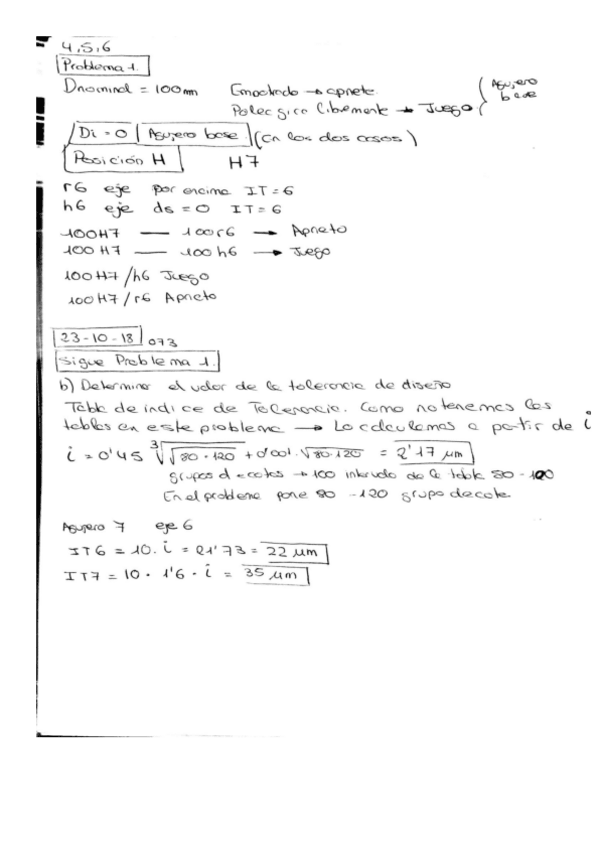 4,5,6
Problema 1.
Dnominal = 100mm Emochado → apriete.
Polea gire libremente → Juego. { Agujero base
Di = 0 | Agujero base | (en los dos casos)
Posición H H7
r6 eje por encima IT = 6
h6 eje ds = 0 IT = 6
100H7 — 100r6 → Aprieto
100H7 — 100h6 → Juego
100H7/h6 Juego
100H7/r6 Aprieto
23-10-18 073
Sigue Problema 1.
b) Determinar el valor de la tolerancia de diseño
Tabla de índice de Tolerancia. Como no tenemos las
tablas en este problema → Lo calculamos a partir de i
i = 0'45 ∛√80·120 + 0'001·√80·120 = 2'17 µm
grupos d cotas → 100 intervalo de la tabla 80 - 100
En el problema pone 80 - 120 grupo de cota
Agujero 7 eje 6
IT6 = 10·i = 21'73 = 22 µm
IT7 = 10 · 1'6 · i = 35 µm